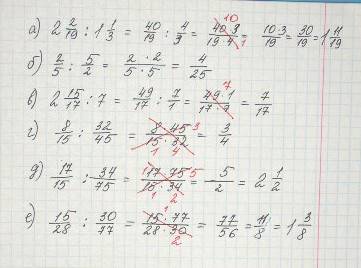 а) 2 2/19 : 1 1/3 = 40/19 : 4/3 = 40·3/19·4 10 1 = 10·3/19 = 30/19 = 1 11/19
б) 2/5 : 5/2 = 2·2/5·5 = 4/25
в) 2 15/17 : 7 = 49/17 : 7/1 = 49·1/17·7 7 = 7/17
г) 8/15 : 32/45 = 8·45/15·32 3 1 4 = 3/4
д) 17/15 : 34/75 = 17·75/15·34 1 5 1 2 = 5/2 = 2 1/2
е) 15/28 : 30/77 = 15·77/28·30 1 2 = 77/56 = 11/8 = 1 3/8